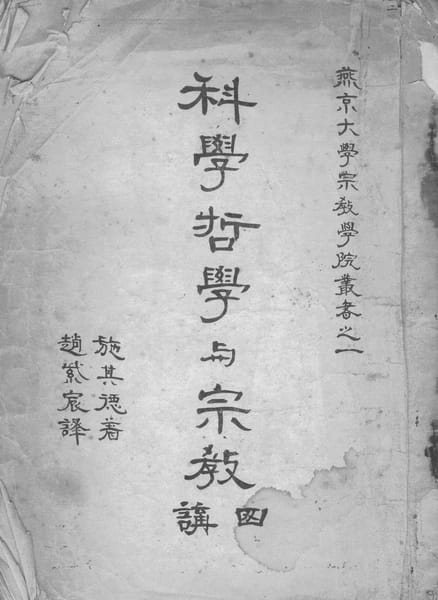 燕京大學宗教學院叢書之一
科學哲學与宗教
四講
施其德著
趙紫宸譯